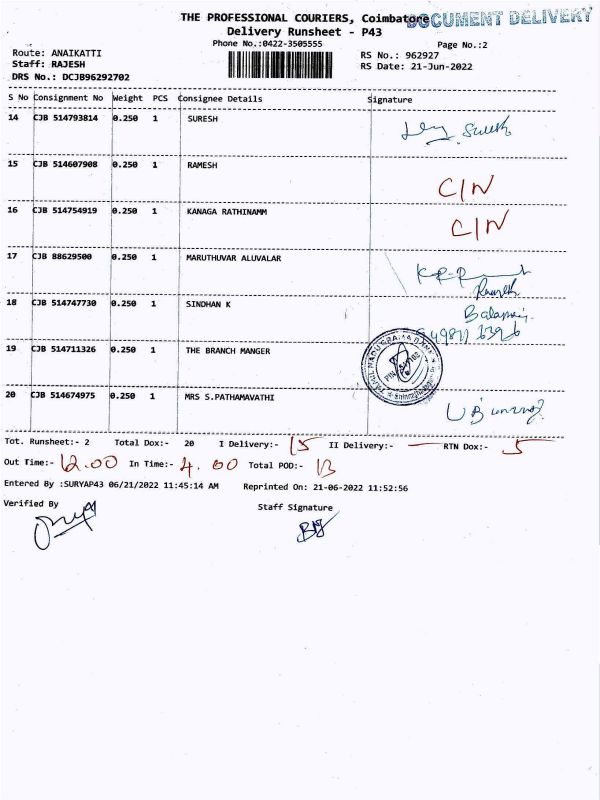 THE PROFESSIONAL COURIERS, Coimbatore
DOCUMENT DELIVERY
Delivery Runsheet - P43
Phone No.:0422-3505555
Page No.:2
Route: ANAIKATTI
RS No.: 962927
Staff: RAJESH
RS Date: 21-Jun-2022
DRS No.: DCJB96292702
S No Consignment No Weight PCS Consignee Details Signature
14 CJB 514793814 0.250 1 SURESH
Suresh
15 CJB 514607908 0.250 1 RAMESH
C/N
16 CJB 514754919 0.250 1 KANAGA RATHINAMM
C/N
17 CJB 88629500 0.250 1 MARUTHUVAR ALUVALAR
18 CJB 514747730 0.250 1 SINDHAN K
19 CJB 514711326 0.250 1 THE BRANCH MANGER
20 CJB 514674975 0.250 1 MRS S.PATHAMAVATHI
Tot. Runsheet:- 2 Total Dox:- 20 I Delivery:- 15 II Delivery:- — RTN Dox:- 5
Out Time:- 12.00 In Time:- 4.00 Total POD:- 13
Entered By :SURYAP43 06/21/2022 11:45:14 AM Reprinted On: 21-06-2022 11:52:56
Verified By
Staff Signature